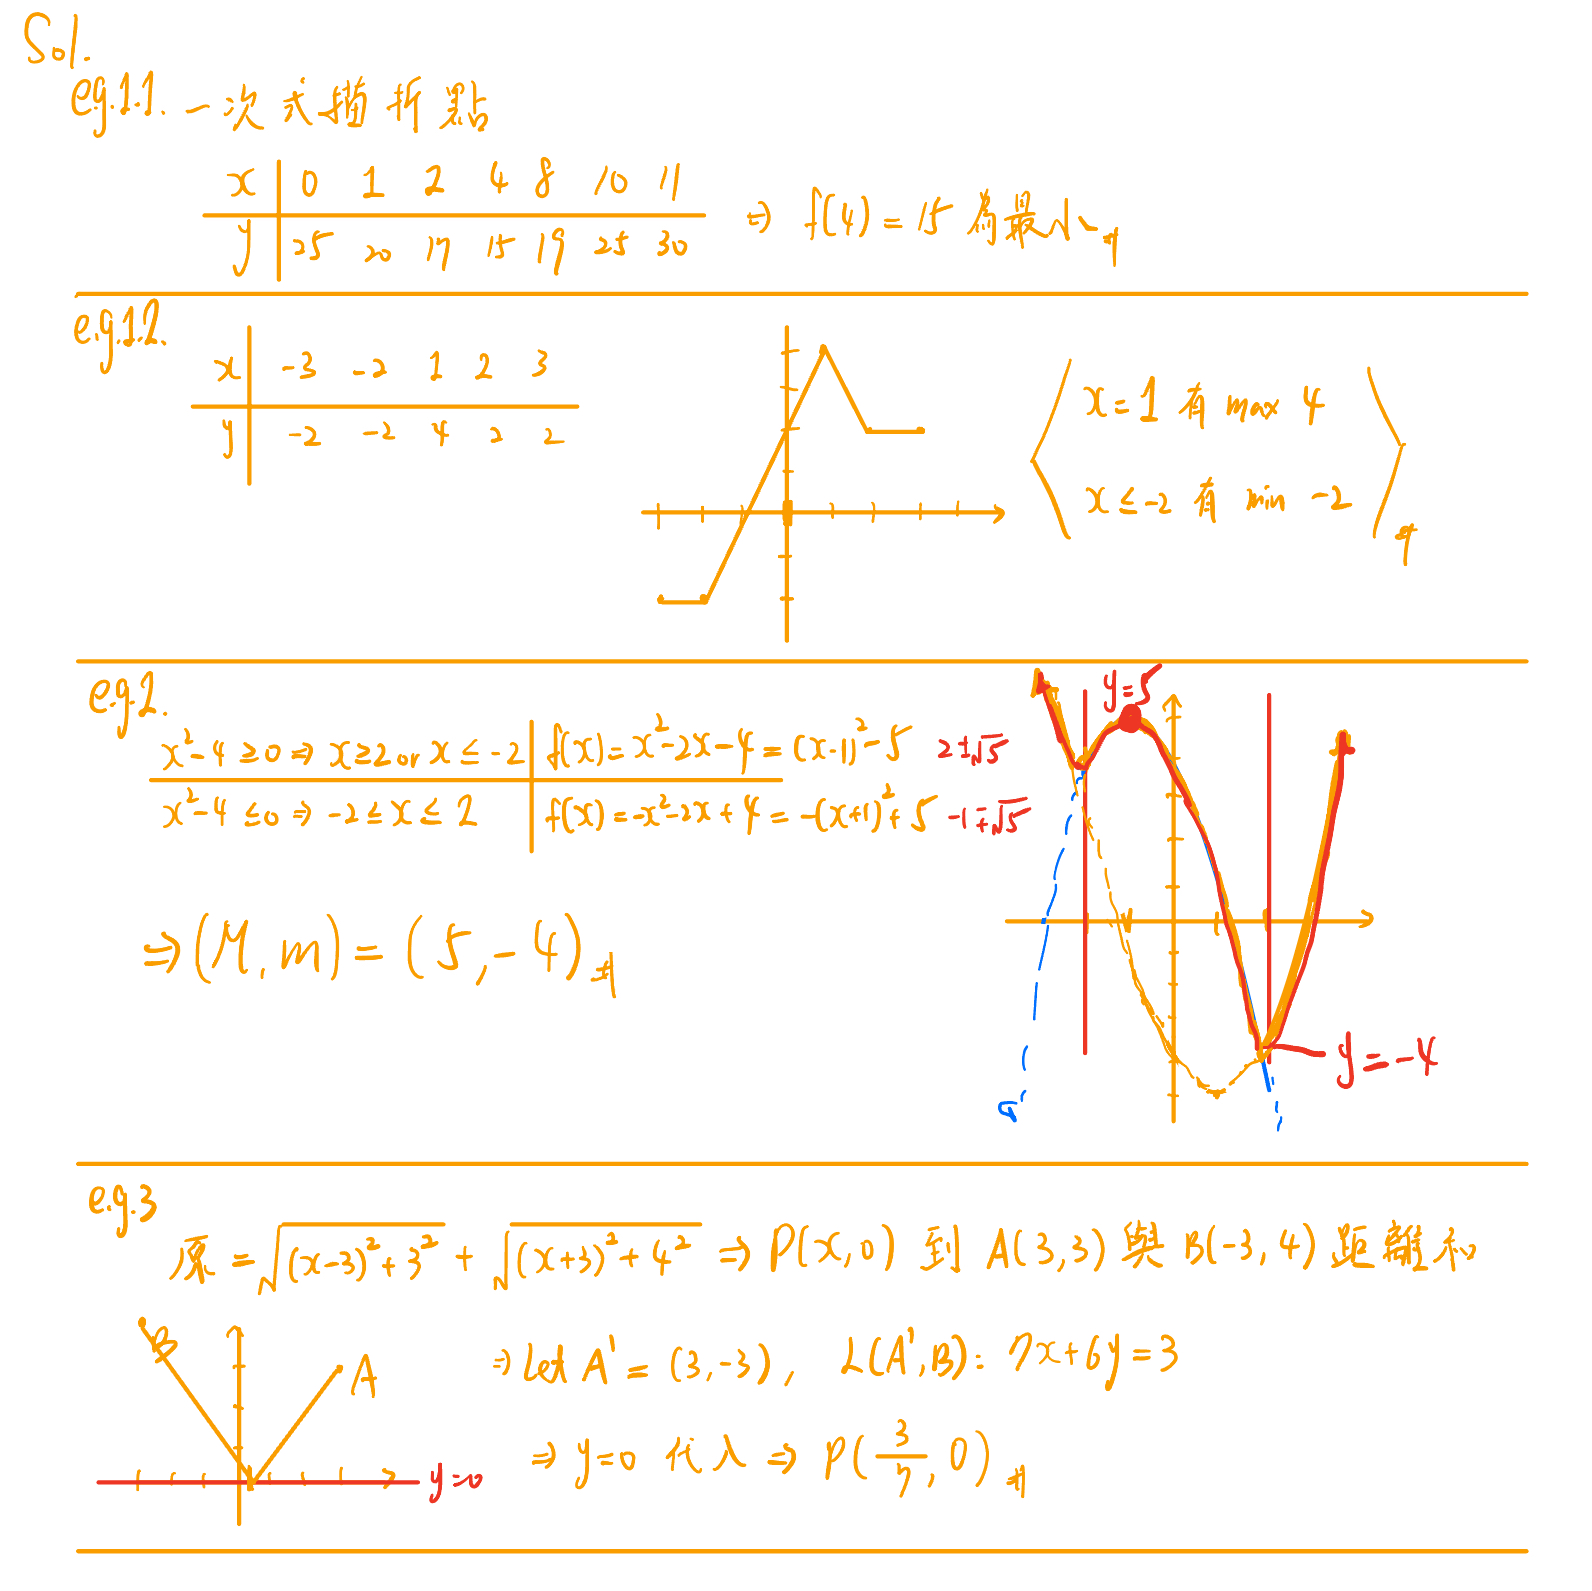 Sol.
eg.1.1. 一次式描折點
x | 0 1 2 4 8 10 11
y | 25 20 17 15 19 25 30
⇒ f(4) = 15 為最小 #
e.g.1.2.
x | -3 -2 1 2 3
y | -2 -2 4 2 2
x = 1 有 max 4
x ≤ -2 有 min -2 #
e.g.2.
x²-4 ≥ 0 ⇒ x ≥ 2 or x ≤ -2 | f(x) = x²-2x-4 = (x-1)²-5 2±√5
x²-4 ≤ 0 ⇒ -2 ≤ x ≤ 2 | f(x) = -x²-2x+4 = -(x+1)²+5 -1∓√5
⇒ (M, m) = (5, -4) #
y=5
y=-4
e.g.3
原 = √((x-3)²+3²) + √((x+3)²+4²) ⇒ P(x,0) 到 A(3,3) 與 B(-3,4) 距離和
⇒ Let A' = (3,-3), L(A',B): 7x+6y=3
⇒ y=0 代入 ⇒ P(3/7, 0) #
B
A
y=0